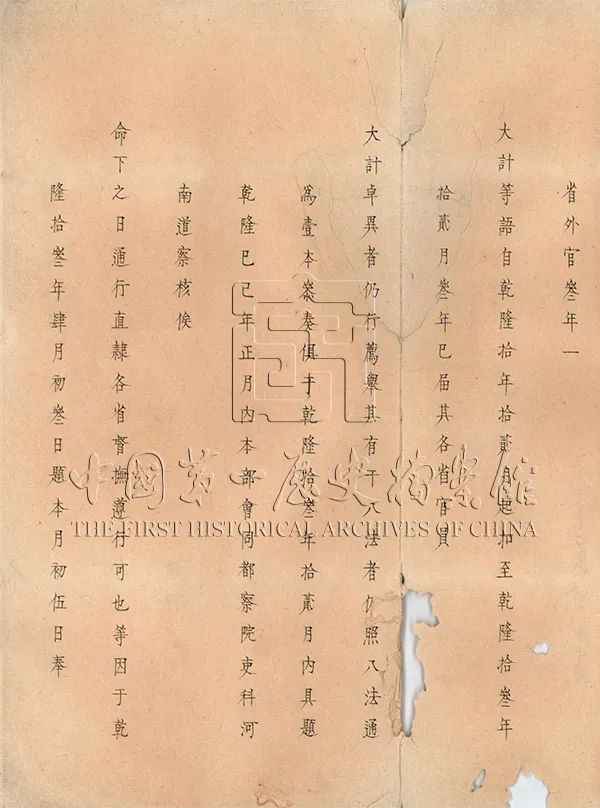 省外官叄年一
大計等語自乾隆拾年拾貳月起扣至乾隆拾叄年
拾貳月叄年已届其各省官員
大計卓異者仍行薦舉其有干八法者仍照八法通
為壹本叅奏俱于乾隆拾叄年拾貳月內具題
乾隆巳巳年正月內本部會同都察院吏科河
南道察核俟
命下之日通行直隸各省督撫遵行可也等因于乾
隆拾叄年肆月初叄日題本月初伍日奉
中國第一歷史檔案館
THE FIRST HISTORICAL ARCHIVES OF CHINA